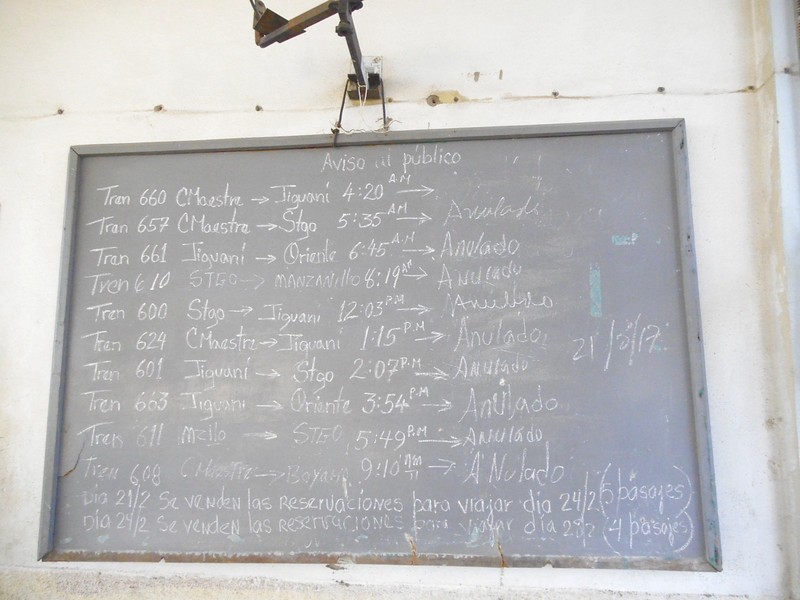 Aviso al público
Tren 660 CMaestre → Jiguaní 4:20 AM →
Tran 657 CMaestra → Stgo 5:35 AM → Anulado
Tran 661 Jiguaní → Oriente 6:45 A.M → Anulado
Tren 610 STGO → MANZANIllo 8:19 AM → Anulado
Tren 600 Stgo → Jiguaní 12:03 P.M → Anulado
Tren 624 CMaestre → Jiguaní 1:15 P.M → Anulado 21/2/17
Tren 601 Jiguaní → Stgo 2:07 P.M → Anulado
Tren 663 Jiguaní → Oriente 3:54 P.M → Anulado
Tren 611 Mzllo → STGO 5:49 P.M → Anulado
Tren 608 CMaestre → Bayamo 9:10 → ANulado
Dia 21/2 Se venden las Reservaciones para viajar dia 24/2 (5 pasajes)
Dia 24/2 Se venden las reservaciones para viajar día (4 pasajes)